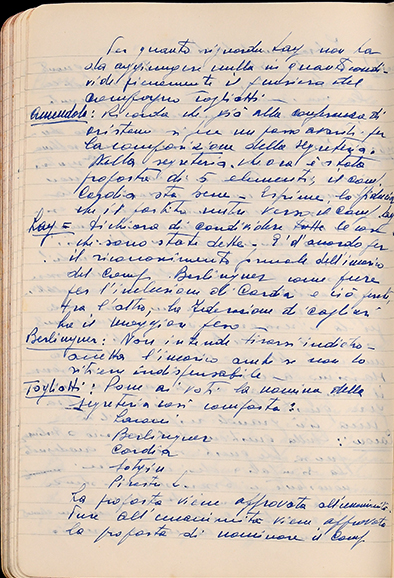 Per quanto riguarda Lay non ha
da aggiungere nulla in quanto condi-
vide pienamente il pensiero del
compagno Togliatti -
Amendola: Ricorda che già alla conferenza di
Oristano si fece un passo avanti per
la composizione della segreteria.
Nella segreteria che ora è stata
proposta di 5 elementi, il comp.
Cardia sta bene - Esprime la fiducia
che il partito nutre verso il comp. Lay
Lay = Dichiara di condividere tutte le cose
che sono state dette - È d'accordo per
il riconoscimento formale dell'incarico
del comp. Berlinguer come pure
per l'inclusione di Cardia e ciò perché
tra l'altro, la Federazione di Cagliari
ha il maggior peso
Berlinguer: Non intende tirarsi indietro
accetta l'incarico anche se non lo
ritiene indispensabile
Togliatti: Pone ai voti la nomina della
segreteria così composta:
Laconi
Berlinguer
Cardia
Sotgiu
Pirastu L.
La proposta viene approvata all'unanimità.
Pure all'unanimità viene approvata
la proposta di nominare il comp.